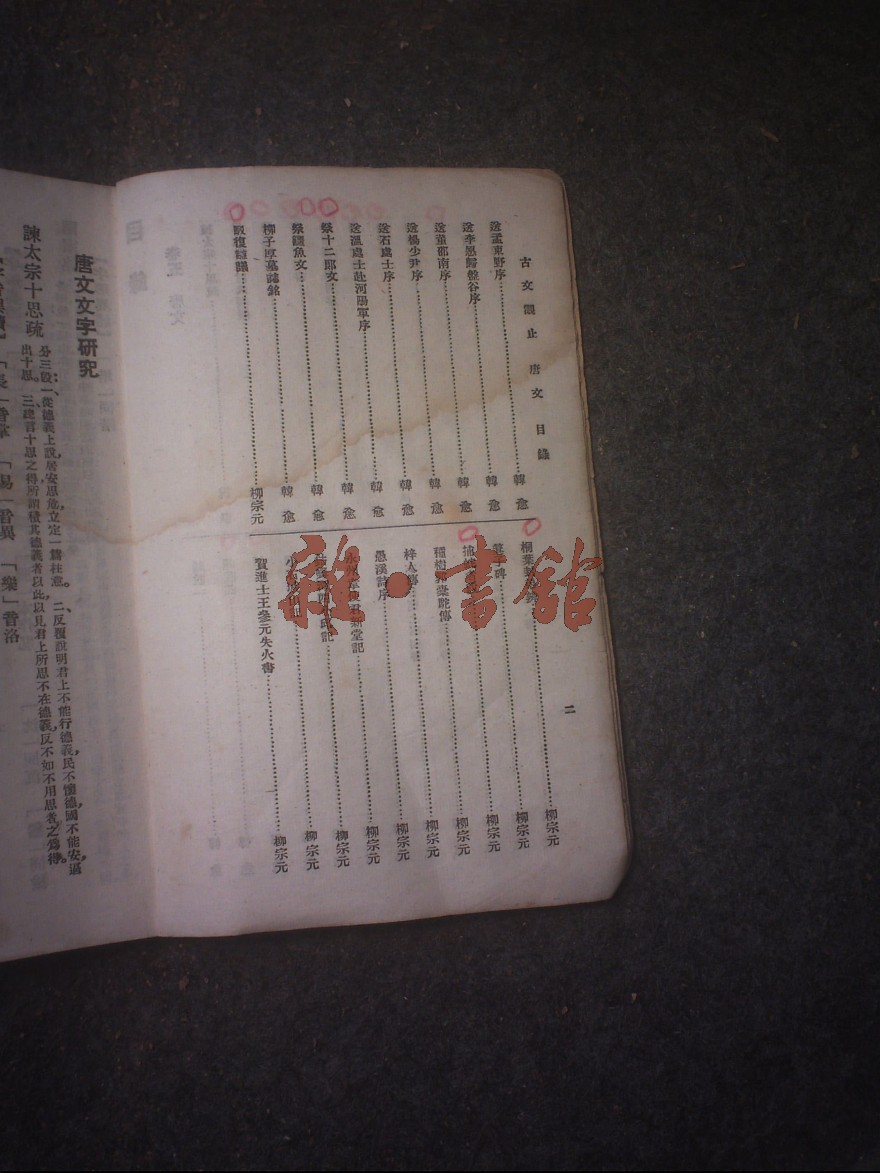 古文觀止 唐文目錄
二
送孟東野序 韓愈
送李愿歸盤谷序 韓愈
送董邵南序 韓愈
送楊少尹序 韓愈
送石處士序 韓愈
送溫處士赴河陽軍序 韓愈
祭十二郎文 韓愈
祭鱷魚文 韓愈
柳子厚墓誌銘 韓愈
駁復讎議 柳宗元
桐葉封弟辨 柳宗元
箕子碑 柳宗元
捕蛇者說 柳宗元
種樹郭橐駝傳 柳宗元
梓人傳 柳宗元
愚溪詩序 柳宗元
永州韋使君新堂記 柳宗元
柳宗元
柳宗元
賀進士王參元失火書 柳宗元
目錄
唐文文字研究
諫太宗十思疏
分三段：一、從德義上說，居安思危，立定一篇柱意。二、反覆說明君上不能行德義，民不懷德，國不能安這
出十思。三、總言十思之得，所謂積其德義者以此，以見君上所思不在德義，反不如不用思者之爲得。
雜·書館